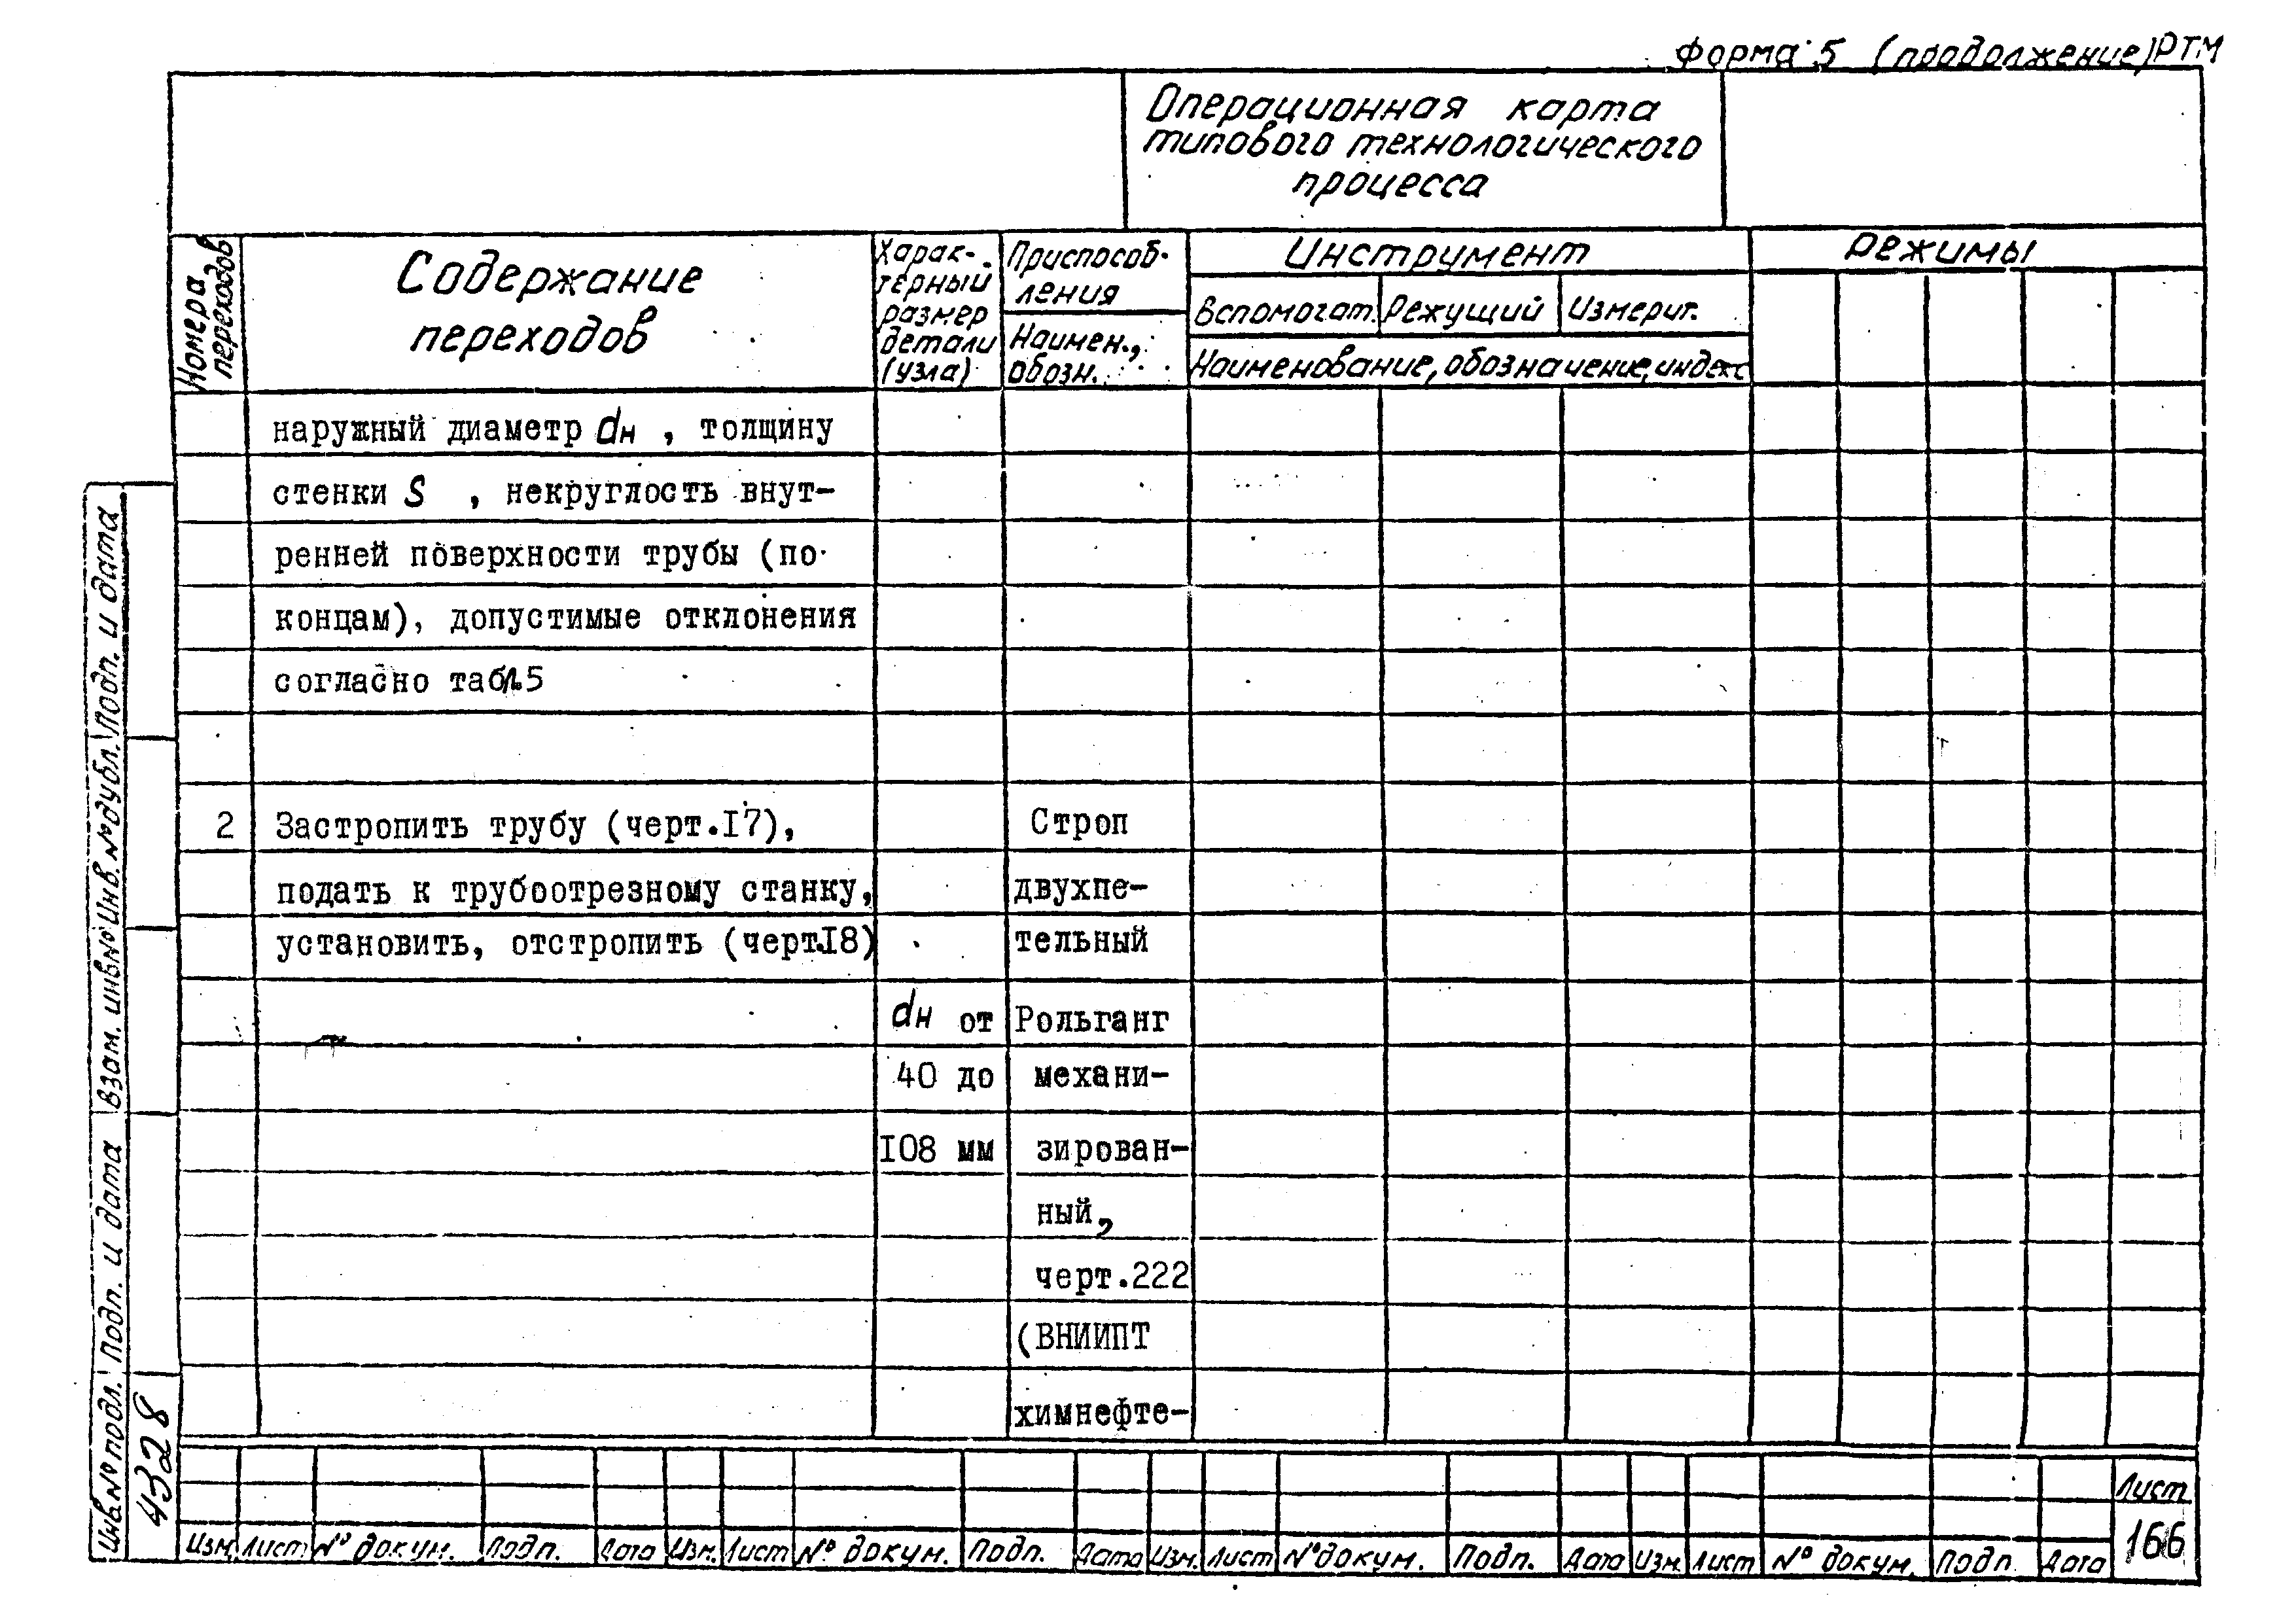 Форма 5 (продолжение) РТМ
Операционная карта
типового технологического
процесса
Номера
переходов
Содержание
переходов
Харак-
терный
размер
детали
(узла)
Приспособ-
ления
Наимен.,
обозн.
Инструмент
Вспомогат. Режущий Измерит.
Наименование, обозначение, индекс
режимы
наружный диаметр dн , толщину
стенки S , некруглость внут-
ренней поверхности трубы (по
концам), допустимые отклонения
согласно табл.5
2 Застропить трубу (черт.I7), Строп
подать к трубоотрезному станку, двухпе-
установить, отстропить (черт.I8) тельный
dн от Рольганг
40 до механи-
I08 мм зирован-
ный,
черт.222
(ВНИИПТ
химнефте-
Подп. и дата
Инв.№дубл.
Взам. инв№
Подп. и дата
Инв№подл.
4328
Изм. Лист № докум. Подп. Дата Изм. Лист № докум. Подп. Дата Изм. Лист № докум. Подп. Дата Изм. Лист № докум. Подп. Дата
Лист
166